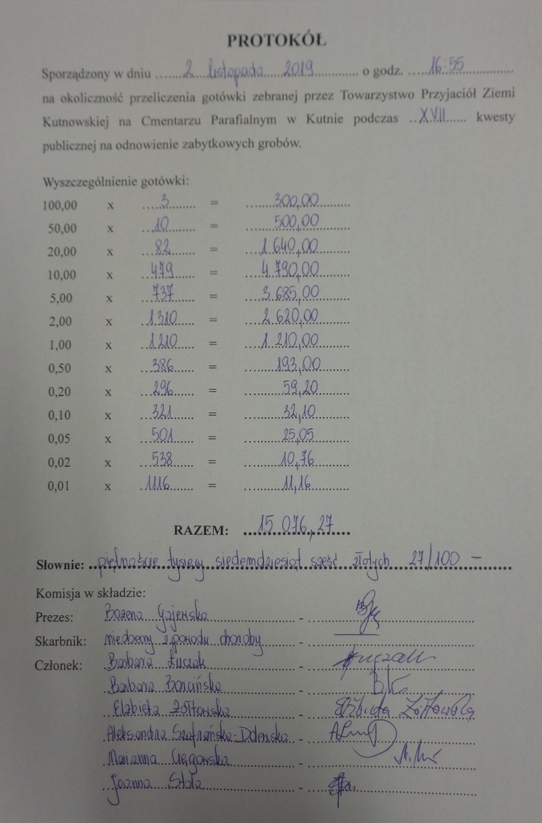 PROTOKÓŁ
Sporządzony w dniu 2 listopada 2019 o godz. 16:55
na okoliczność przeliczenia gotówki zebranej przez Towarzystwo Przyjaciół Ziemi
Kutnowskiej na Cmentarzu Parafialnym w Kutnie podczas XVII kwesty
publicznej na odnowienie zabytkowych grobów.
Wyszczególnienie gotówki:
100,00 x 3 = 300,00
50,00 x 10 = 500,00
20,00 x 82 = 1 640,00
10,00 x 479 = 4 790,00
5,00 x 737 = 3 685,00
2,00 x 1310 = 2 620,00
1,00 x 1210 = 1 210,00
0,50 x 386 = 193,00
0,20 x 296 = 59,20
0,10 x 321 = 32,10
0,05 x 501 = 25,05
0,02 x 538 = 10,76
0,01 x 1116 = 11,16
RAZEM: 15 076,27
Słownie: piętnaście tysięcy siedemdziesiąt sześć złotych 27/100 -
Komisja w składzie:
Prezes: Bożena Gajewska -
Skarbnik: nieobecny z powodu choroby -
Członek: Barbara Łuczak - Łuczak
Barbara - B.K.
Elżbieta Żółtowska - Elżbieta Żółtowska
Aleksandra Szafrańska- -
Marianna
Joanna -